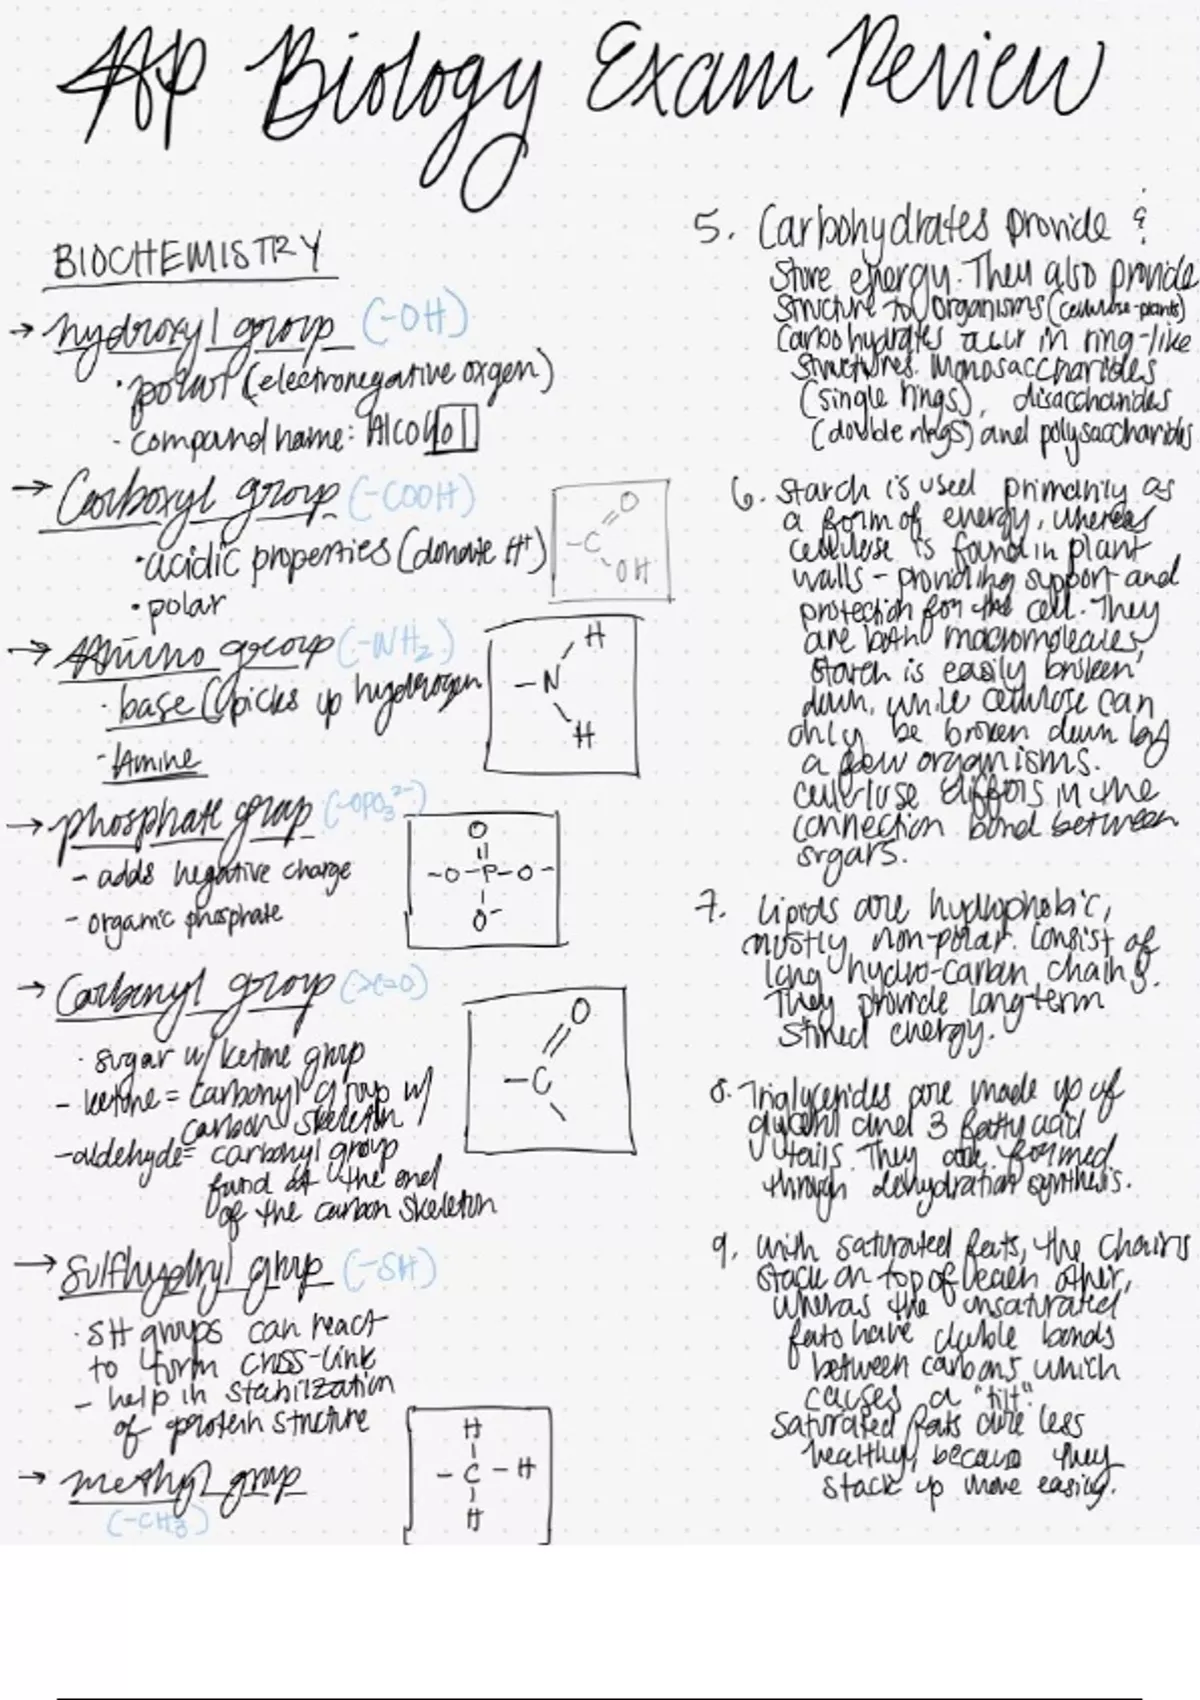 AP Biology Exam Review
BIOCHEMISTRY
→ hydroxyl group (-OH)
· polar (electronegative oxgen)
- compound name: Alcohol
→ Carboxyl group (-COOH)
· acidic properties (donate H+)
• polar
O
-C
OH
→ Amino group (-NH2)
· base (picks up hydrogen
- Amine
H
-N
H
→ phosphate group (-OPO3 2-)
- adds negative charge
- organic phosphate
O
-O-P-O-
O-
→ Carbonyl group (>C=O)
· sugar w/ ketone group
- ketone = carbonyl group w/
carbon skeleton
-aldehyde= carbonyl group
found at the end
of the carbon skeleton
O
-C
→ Sulfhydryl group (-SH)
· SH groups can react
to form cross-link
- help in stabilzation
of protein structure
→ methyl group
(-CH3)
H
- C - H
H
5. Carbohydrates provide &
store energy. They also provide
structure to organisms (cellulose-plants)
Carbohydrates occur in ring-like
structures. Monosaccharides
(single rings), disaccharides
(double rings) and polysaccharides
6. Starch is used primarily as
a form of energy, whereas
cellulose is found in plant
walls - providing support and
protection for the cell. They
are both macromolecules,
starch is easily broken
down, while cellulose can
only be broken down by
a few organisms.
cellulose differs in the
connection bond between
sugars.
7. Lipids are hydrophobic,
mostly non-polar. Consist of
long hydro-carbon chains.
They provide long-term
stored energy.
8. Triglycerides are made up of
glycerol and 3 fatty acid
tails. They are formed
through dehydration synthesis.
9. With saturated fats, the chains
stack on top of each other,
wheras the unsaturated
fats have double bonds
between carbons which
causes a "tilt".
Saturated fats are less
healthy because they
stack up more easily.